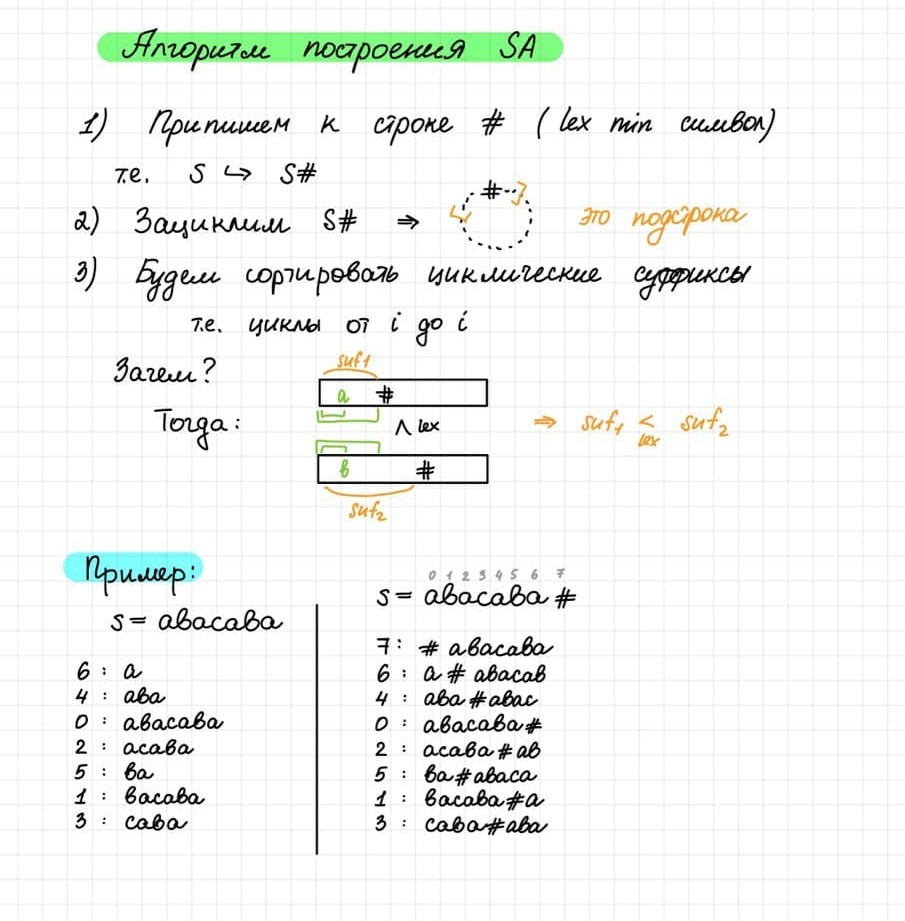 Алгоритм построения SA
1) Припишем к строке # (lex min символ)
т.е. S ↪ S#
2) Зациклим S# ⇒ # это подстрока
3) Будем сортировать циклические суффиксы
т.е. циклы от i до i
Зачем?
suf1
a #
Тогда: ∧ lex ⇒ suf1 < lex suf2
b #
suf2
Пример:
s = abacaba
6 : a
4 : aba
0 : abacaba
2 : acaba
5 : ba
1 : bacaba
3 : caba
0 1 2 3 4 5 6 7
s = abacaba#
7 : # abacaba
6 : a # abacab
4 : aba # abac
0 : abacaba #
2 : acaba # ab
5 : ba # abaca
1 : bacaba # a
3 : caba # aba